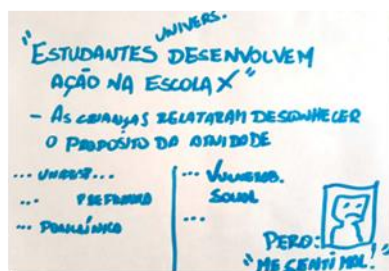 UNIVERS.
"ESTUDANTES DESENVOLVEM
AÇÃO NA ESCOLA X"
- AS CRIANÇAS RELATARAM DESCONHECER
O PROPÓSITO DA ATIVIDADE
... UNIVERSIT...
... PREFEITURA
... POLICLÍNICA
... VULNERAB.
SOCIAL
...
PERO:
"ME SENTI MAL!"